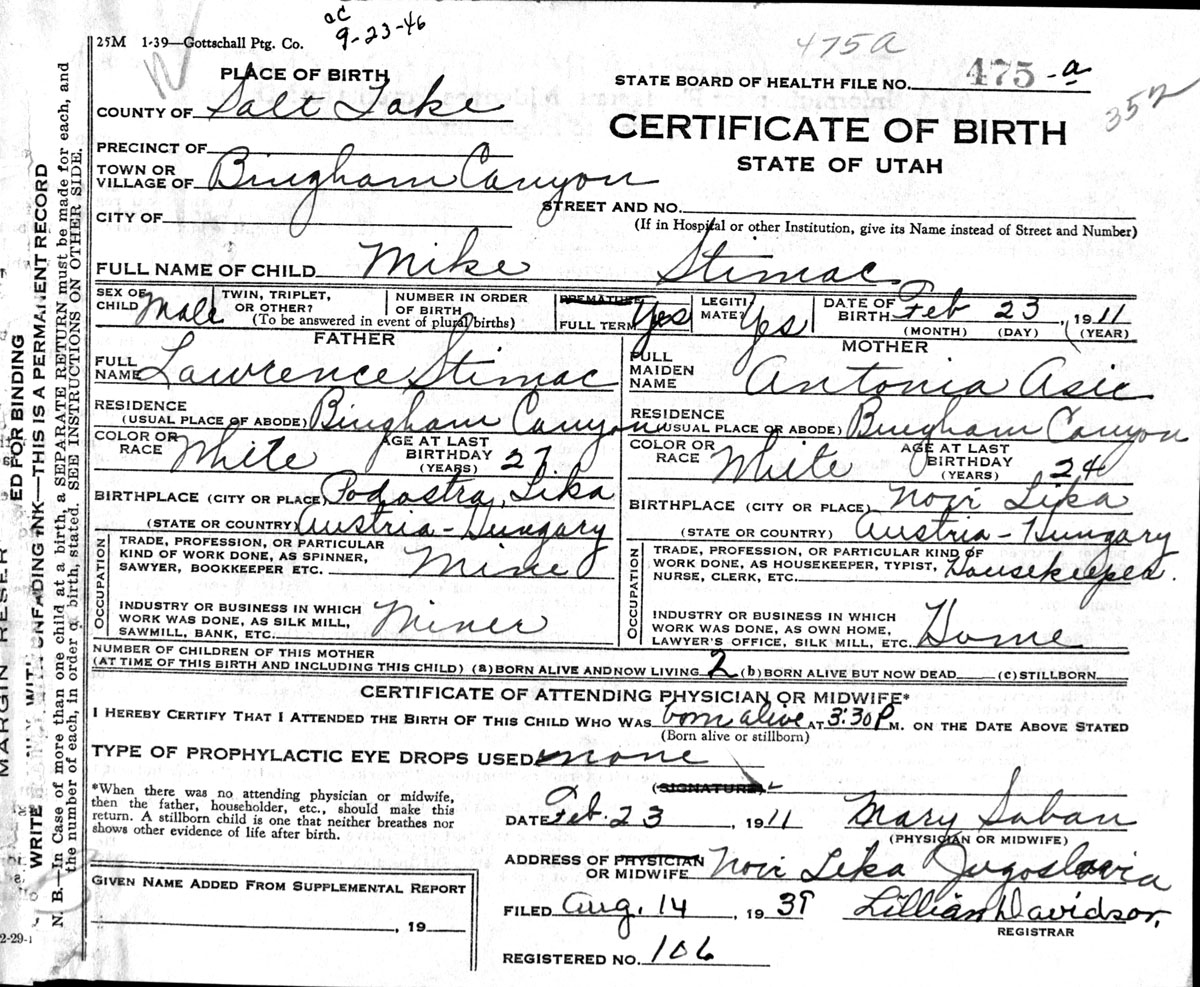 ac
9-23-46
25M 1-39—Gottschall Ptg. Co.
475A
PLACE OF BIRTH
STATE BOARD OF HEALTH FILE NO. 475-a
352
COUNTY OF Salt Lake
CERTIFICATE OF BIRTH
STATE OF UTAH
PRECINCT OF
TOWN OR VILLAGE OF Bingham Canyon
STREET AND NO.
(If in Hospital or other Institution, give its Name instead of Street and Number)
CITY OF
FULL NAME OF CHILD Mike Stimac
SEX OF CHILD Male TWIN, TRIPLET, OR OTHER? NUMBER IN ORDER OF BIRTH
(To be answered in event of plural births)
PREMATURE
FULL TERM Yes LEGITIMATE? Yes DATE OF BIRTH Feb 23, 1911
(MONTH) (DAY) (YEAR)
FATHER
FULL NAME Lawrence Stimac
RESIDENCE
(USUAL PLACE OF ABODE) Bingham Canyon
COLOR OR RACE White AGE AT LAST BIRTHDAY (YEARS) 27
BIRTHPLACE (CITY OR PLACE) Podastra, Lika
(STATE OR COUNTRY) Austria-Hungary
OCCUPATION
TRADE, PROFESSION, OR PARTICULAR
KIND OF WORK DONE, AS SPINNER,
SAWYER, BOOKKEEPER ETC. Mine
INDUSTRY OR BUSINESS IN WHICH
WORK WAS DONE, AS SILK MILL,
SAWMILL, BANK, ETC. Miner
MOTHER
FULL MAIDEN NAME Antonia Asic
RESIDENCE
(USUAL PLACE OF ABODE) Bingham Canyon
COLOR OR RACE White AGE AT LAST BIRTHDAY (YEARS) 24
BIRTHPLACE (CITY OR PLACE) Novi Lika
(STATE OR COUNTRY) Austria-Hungary
OCCUPATION
TRADE, PROFESSION, OR PARTICULAR KIND OF
WORK DONE, AS HOUSEKEEPER, TYPIST,
NURSE, CLERK, ETC. Housekeeper.
INDUSTRY OR BUSINESS IN WHICH
WORK WAS DONE, AS OWN HOME,
LAWYER'S OFFICE, SILK MILL, ETC. Home
NUMBER OF CHILDREN OF THIS MOTHER
(AT TIME OF THIS BIRTH AND INCLUDING THIS CHILD) (a) BORN ALIVE AND NOW LIVING 2 (b) BORN ALIVE BUT NOW DEAD (c) STILLBORN
CERTIFICATE OF ATTENDING PHYSICIAN OR MIDWIFE*
I HEREBY CERTIFY THAT I ATTENDED THE BIRTH OF THIS CHILD WHO WAS born alive AT 3:30 P M. ON THE DATE ABOVE STATED
(Born alive or stillborn)
TYPE OF PROPHYLACTIC EYE DROPS USED none
*When there was no attending physician or midwife,
then the father, householder, etc., should make this
return. A stillborn child is one that neither breathes nor
shows other evidence of life after birth.
(SIGNATURE)
DATE Feb. 23, 1911 Mary Saban
(PHYSICIAN OR MIDWIFE)
ADDRESS OF PHYSICIAN
OR MIDWIFE Novi Lika Jugoslavia
GIVEN NAME ADDED FROM SUPPLEMENTAL REPORT
, 19
FILED Aug. 14, 1939 Lillian Davidson,
REGISTRAR
REGISTERED NO. 106
WRITE WITH UNFADING INK—THIS IS A PERMANENT RECORD
N. B.—In Case of more than one child at a birth, a SEPARATE RETURN must be made for each, and
the number of each, in order of birth, stated. SEE INSTRUCTIONS ON OTHER SIDE.
MARGIN RESER ED FOR BINDING
2-29-1